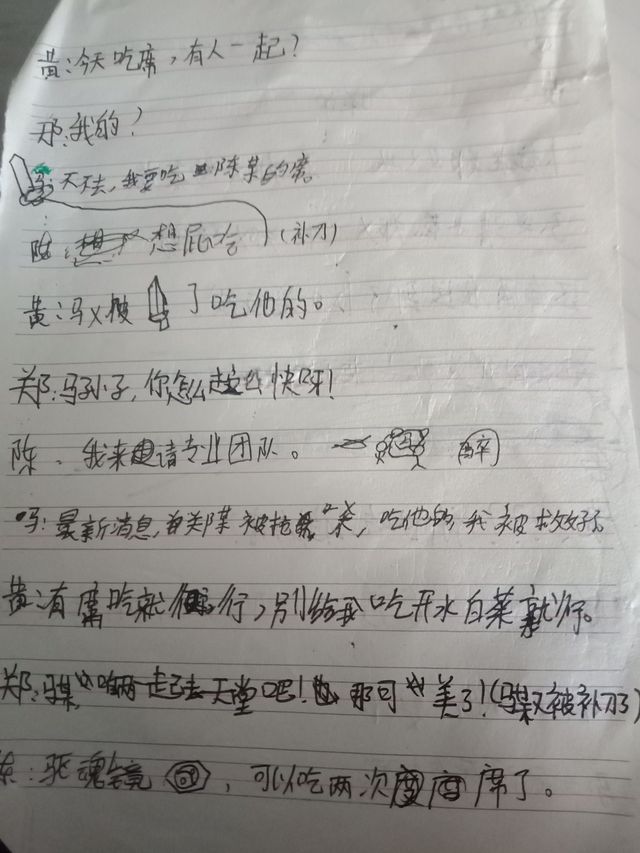 黄:今天吃席,有人一起?
郑:我的?
不去,我要吃陈某的席。
陈:想屁吃(补刀)
黄:马又被了吃他的。
郑:马孙子,你怎么这么快呀!
陈、我来邀请专业团队。
吗:最新消息,郑某被抢杀,吃他的,我被救好了。
黄:有席吃就行,别给我吃开水白菜就行。
郑:马某"咱俩一起去天堂吧!那可"美了!(马某又被补刀了)
陈:驱魂镜,可以吃两次席了。